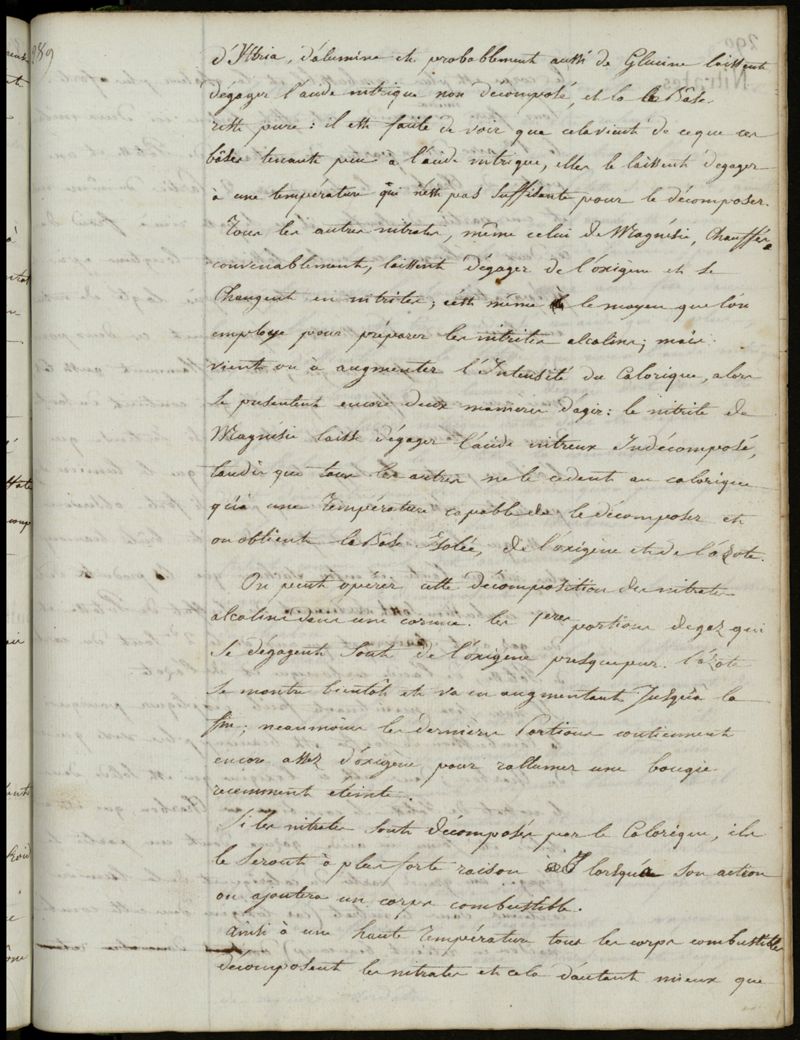 289
d'Yttria, d'alumine et probablement aussi de Glucine laissent
dégager l'acide nitrique non decomposé, et la Bâse
reste pure : il est facile de voir que cela vient de ce que ces
bâses tenant peu à l'acide nitrique, elles le laissent dégager
à une temperature qui n'est pas suffisante pour le décomposer.
Tous les autres nitrates, même celui de Magnésie, Chauffés
convenablement, laissent dégager de l'oxigène et se
Changent en nitrites ; c'est même le moyen que l'on
employe pour préparer les nitrites alcalins ; mais
vient on à augmenter l'Intensité du Calorique, alors
se présentent encore deux manieres d'agir : le nitrite de
Magnésie laisse dégager l'acide nitreux Indécomposé,
tandis que tous les autres ne le cedent au calorique
qu'à une Température capable de le décomposer et
on obtient la Bâse Isolée, de l'oxigène et de l'azote.
On peut opérer cette décomposition des nitrates
alcalins dans une cornue. les 1eres portions de gaz qui
se dégagent sont de l'oxigène presque pur. l'azote
se montre bientôt et va en augmentant Jusqu'à la
fin ; neanmoins les dernieres Portions contiennent
encore assez d'oxigène pour rallumer une bougie
recemment éteinte.
Si les nitrates sont décomposés par le Calorique, ils
le seront à plus forte raison lorsqu'à son action
on ajoutera un corps combustible.
Ainsi à une haute Température tous les corps combustibles
décomposent les nitrates et cela d'autant mieux que